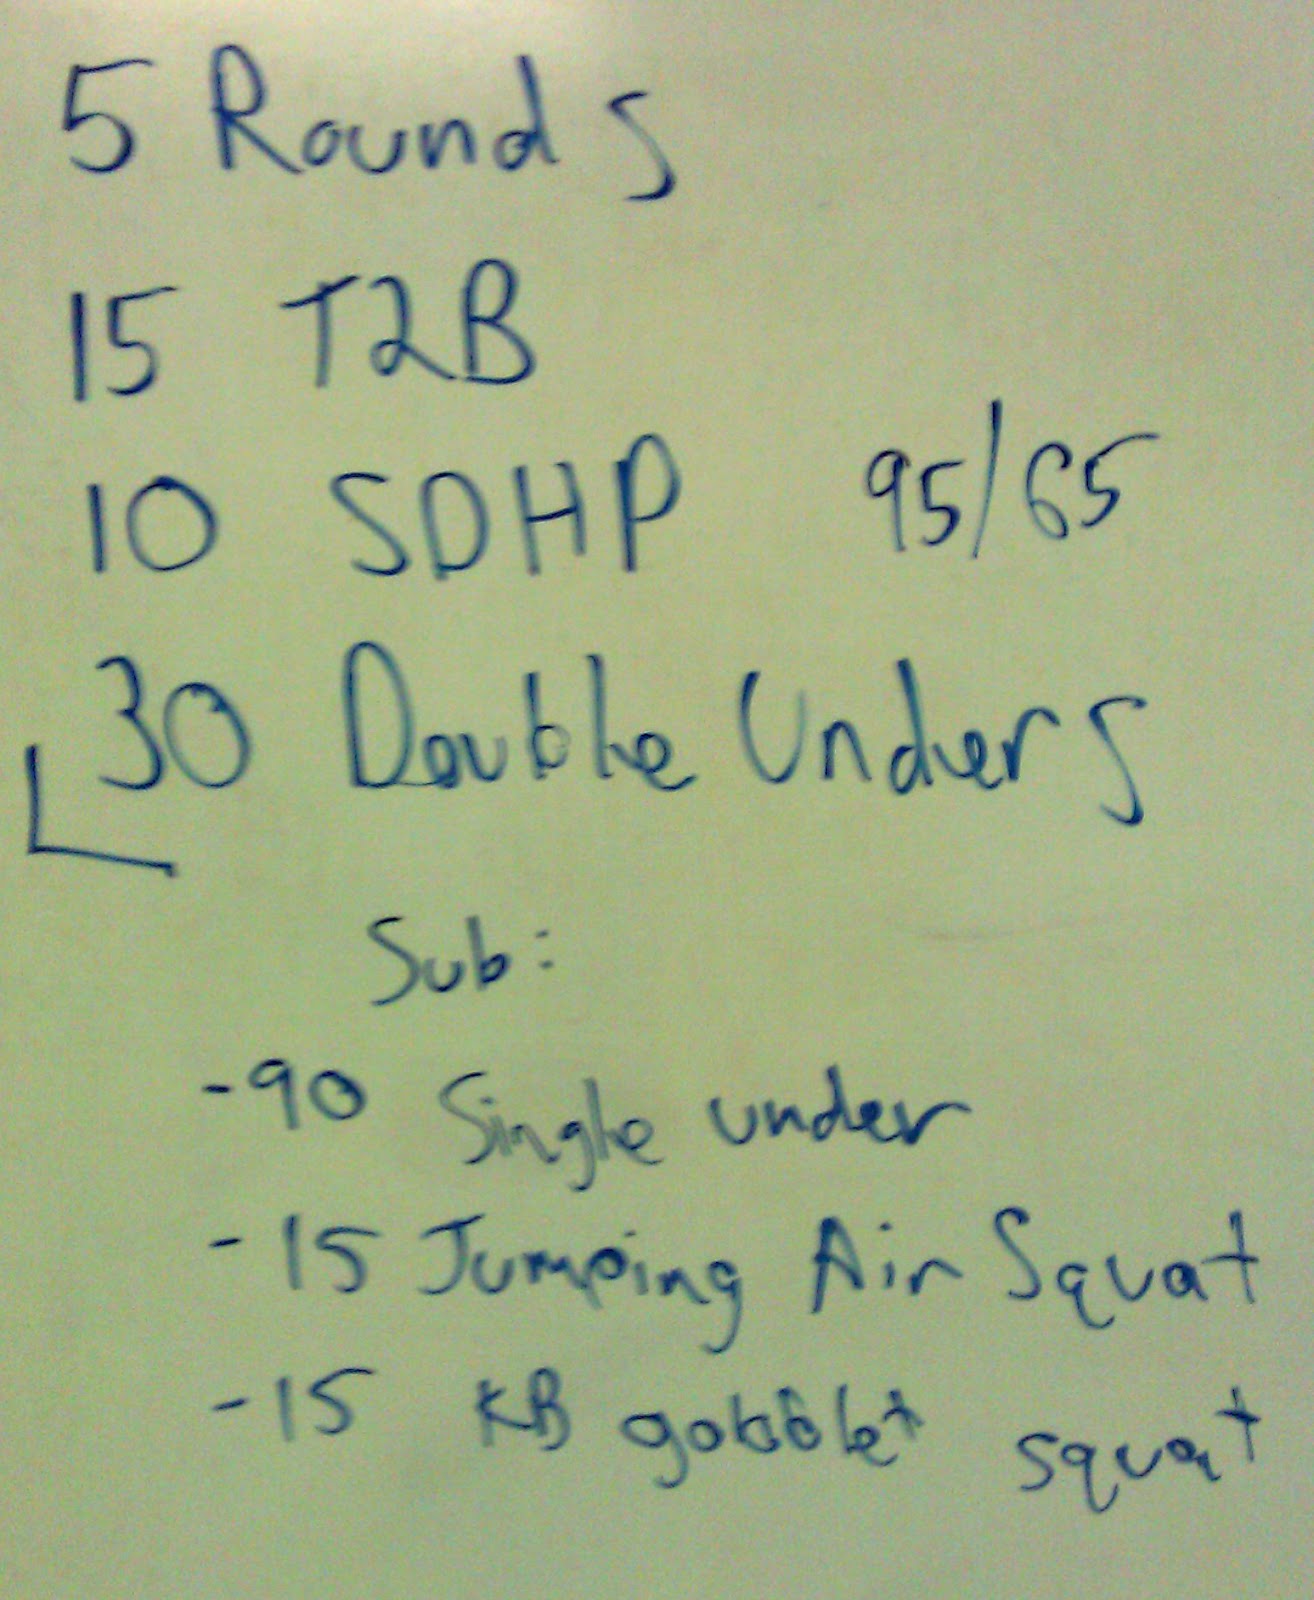 5 Rounds
15 T2B
10 SDHP 95/65
30 Double Unders
Sub:
-90 Single under
-15 Jumping Air Squat
-15 KB gobblet squat